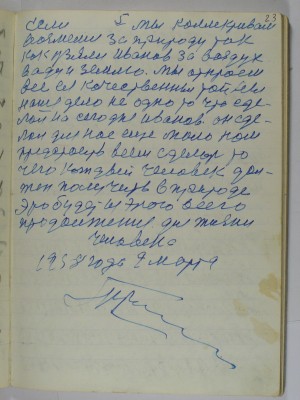 23
если мы коллективом
возьмемся за природу так
как взялся Иванов за воздух
воду и землю. Мы откроем
все ее качественные
наше дело не одно то что сде-
лал на сегодня Иванов. он сде-
лал для нас еще мало нам
предстоит всем сделать то
чего каждый человек дол-
жен получить в природе
Это будет из этого всего
продолжение для жизни
человека
года 9 марта